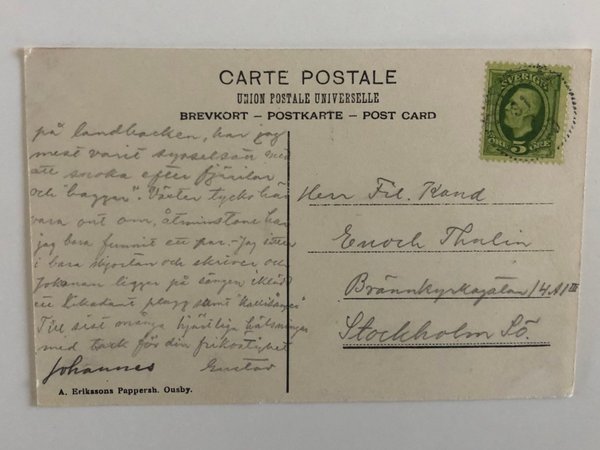 CARTE POSTALE
UNION POSTALE UNIVERSELLE
BREVKORT – POSTKARTE – POST CARD
SVERIGE
ÖRE 5 ÖRE
på landbacken, har jag
mest varit sysselsatt med
att snoka efter fjärilar
och "baggar". Växter tycks här
vara ont om, åtminstone har
jag bara funnit ett par. – Jag sitter
i bara skjortan och skriver och
Johanan ligger på sängen iklädd
ett plagg samt
Till sist många hjärtliga hälsningar
med tack för din frikostighet
Johannes Gustav
Herr Fil. Kand
Enoch Thulin
Brännkyrkagatan
Stockholm Sö.
A. Erikssons Pappersh. Ousby.